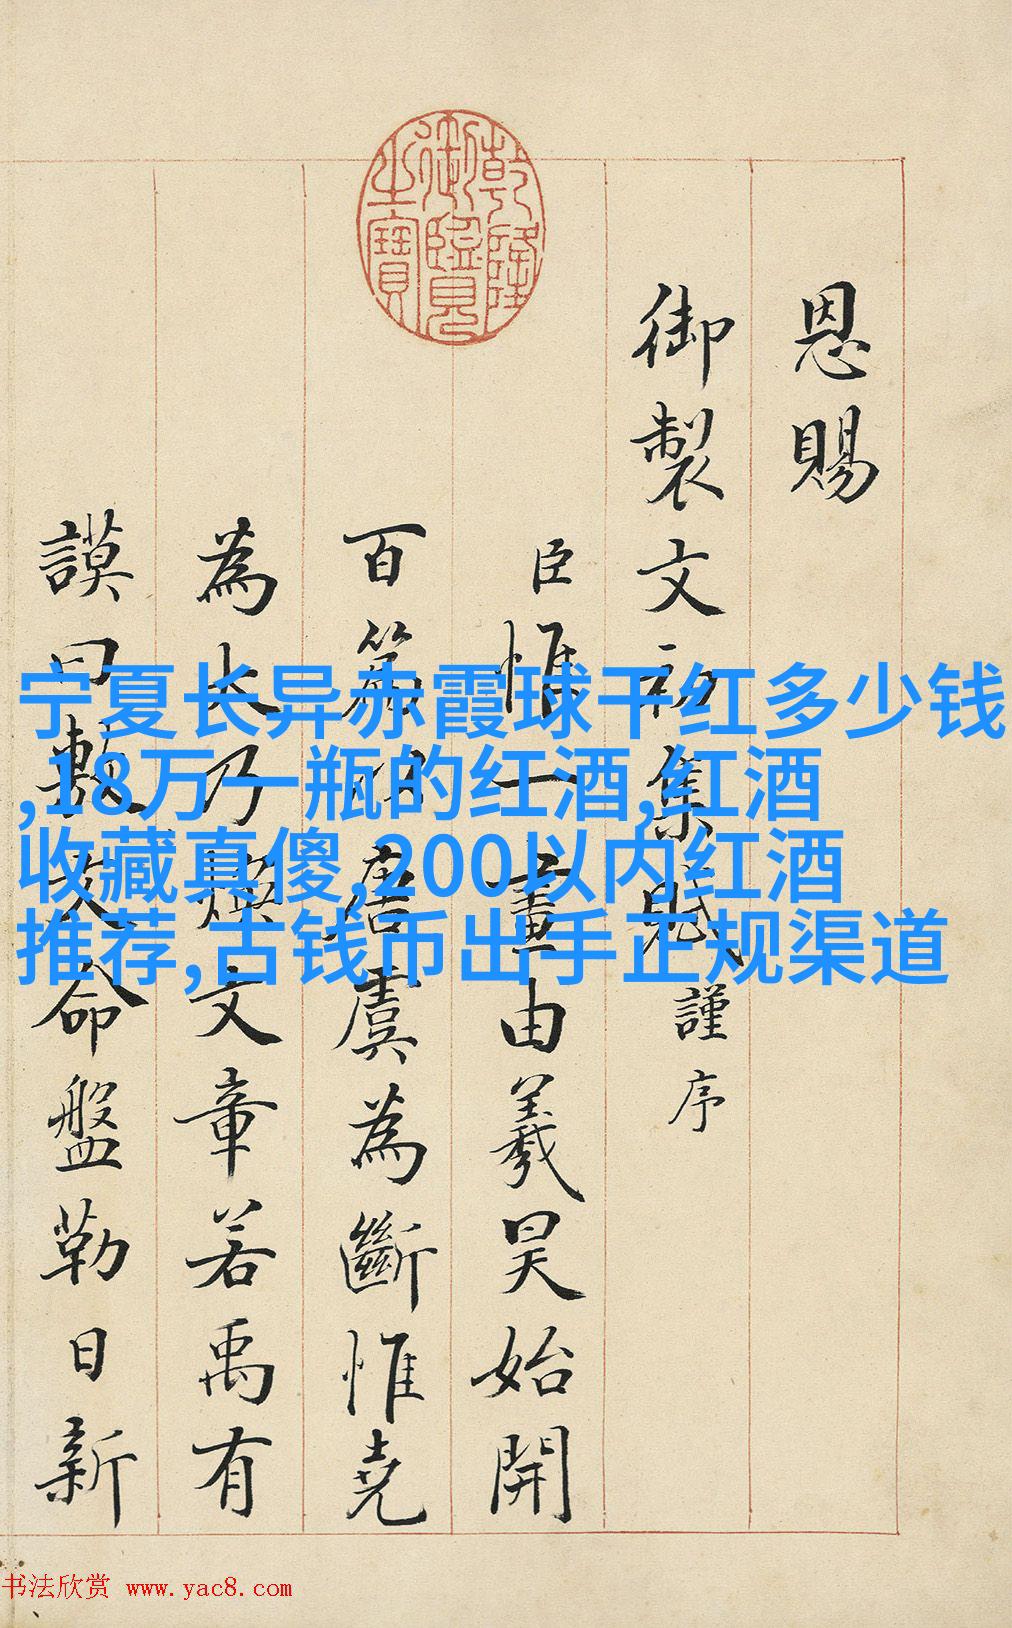 乾隆
御覽
之寶
恩賜
御製文初集謹序
臣惟一畫由羲昊始開
百篇唐虞為斷惟堯
為大乃煥文章若禹有
謨曰敷文命盤勒日新
宁夏长异赤霞球干红多少钱
,18万一瓶的红酒,红酒
收藏真傻,200以内红酒
推荐,古钱币出手正规渠道
书法欣赏 www.yac8.com